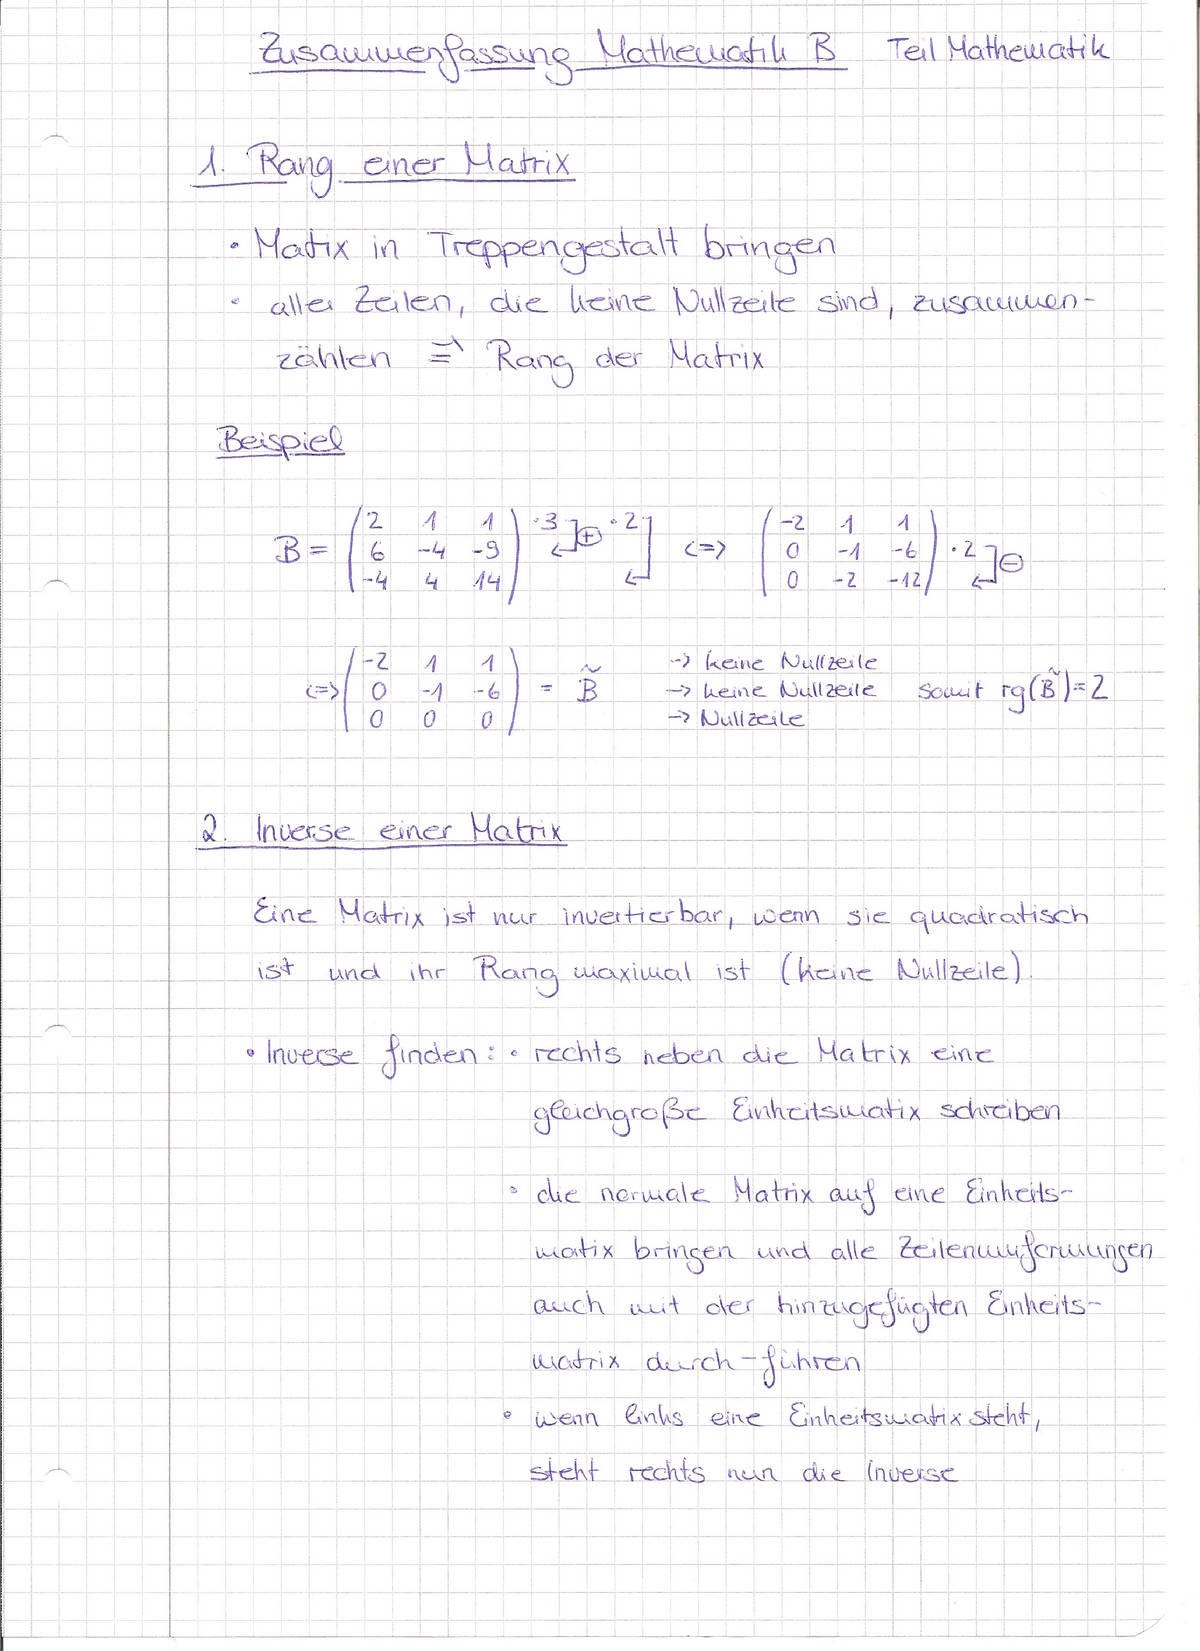 Zusammenfassung Mathematik B Teil Mathematik
1. Rang einer Matrix
• Matix in Treppengestalt bringen
• aller Zeilen, die keine Nullzeile sind, zusammen-
zählen ⇒ Rang der Matrix
Beispiel
B = ( 2 1 1 ; 6 -4 -9 ; -4 4 14 ) ·3 ⊕ ·2 <=> ( -2 1 1 ; 0 -1 -6 ; 0 -2 -12 ) ·2 ⊖
<=> ( -2 1 1 ; 0 -1 -6 ; 0 0 0 ) = B̃
-> keine Nullzeile
-> keine Nullzeile somit rg(B̃)=2
-> Nullzeile
2. Inverse einer Matrix
Eine Matrix ist nur invertierbar, wenn sie quadratisch
ist und ihr Rang maximal ist (keine Nullzeile).
• Inverse finden: • rechts neben die Matrix eine
gleichgroße Einheitsmatix schreiben
• die normale Matrix auf eine Einheits-
matix bringen und alle Zeilenumformungen
auch mit der hinzugefügten Einheits-
matrix durch-führen
• wenn links eine Einheitsmatix steht,
steht rechts nun die Inverse